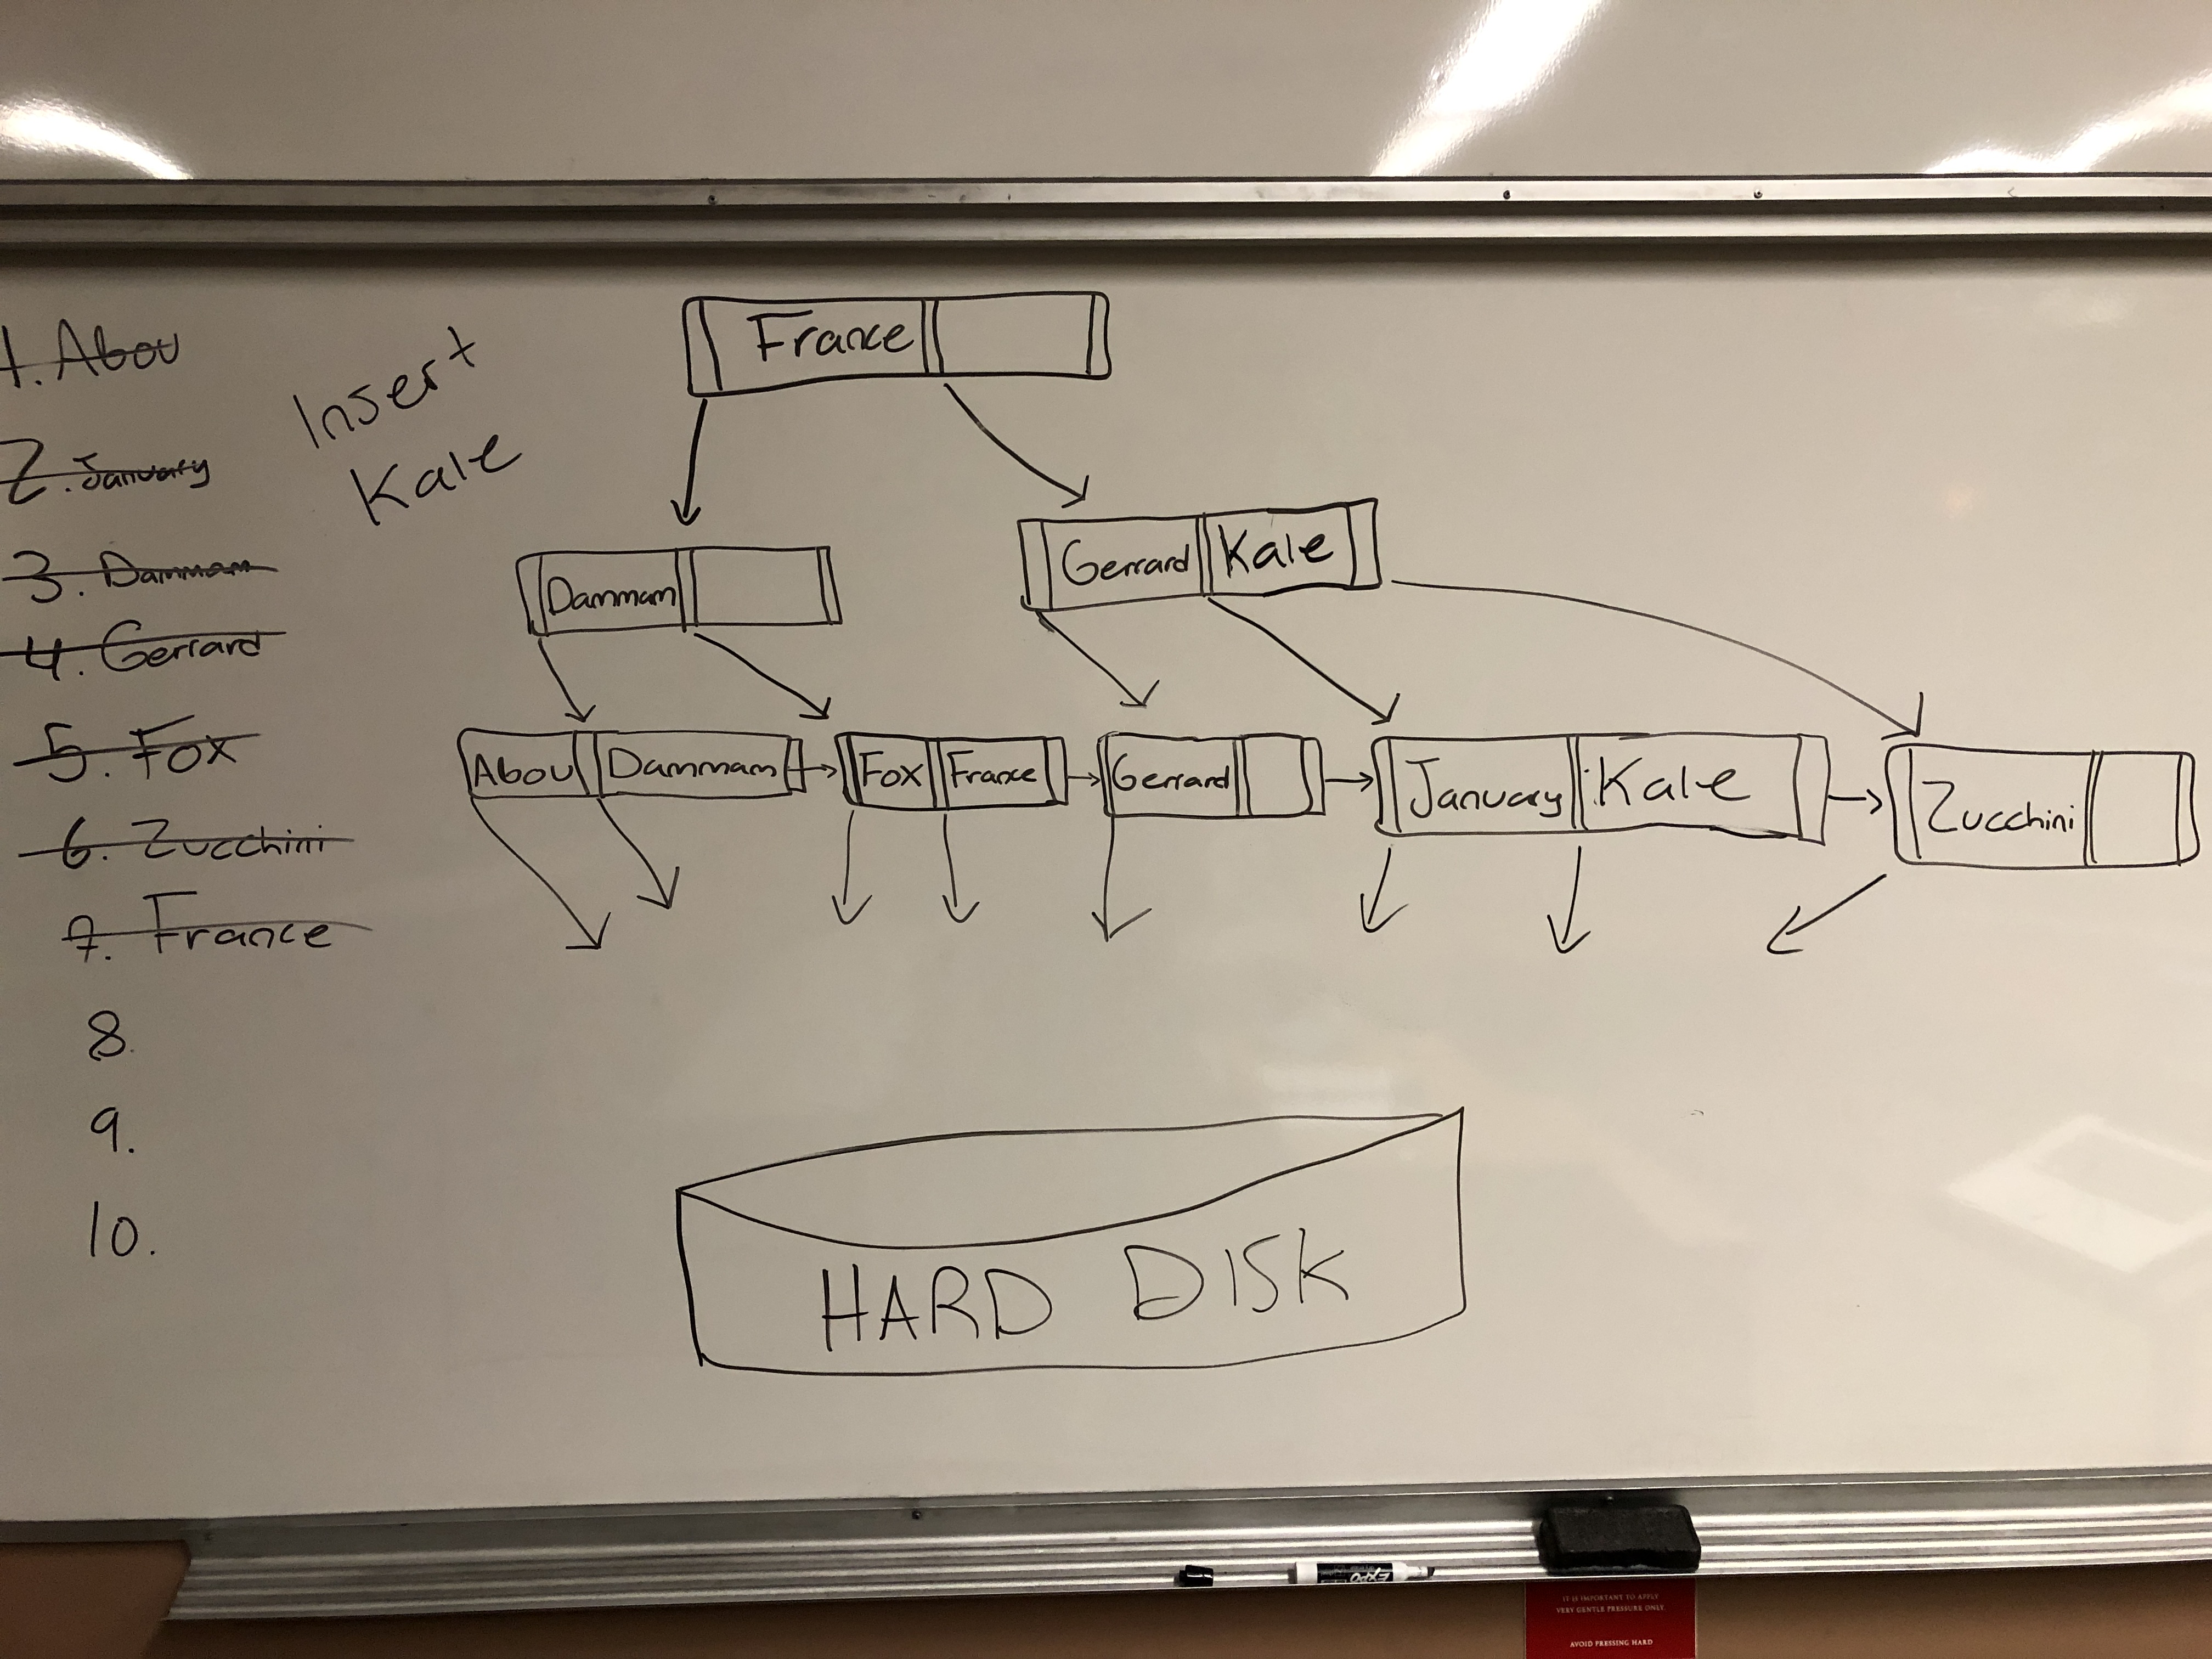 1. Abou
2. January
3. Dammam
4. Gerrard
5. Fox
6. Zucchini
7. France
8.
9.
10.
Insert
Kale
France
Dammam
Gerrard Kale
Abou Dammam Fox France Gerrard January Kale Zucchini
HARD DISK
EXPO
IT IS IMPORTANT TO APPLY
VERY GENTLE PRESSURE ONLY.
AVOID PRESSING HARD